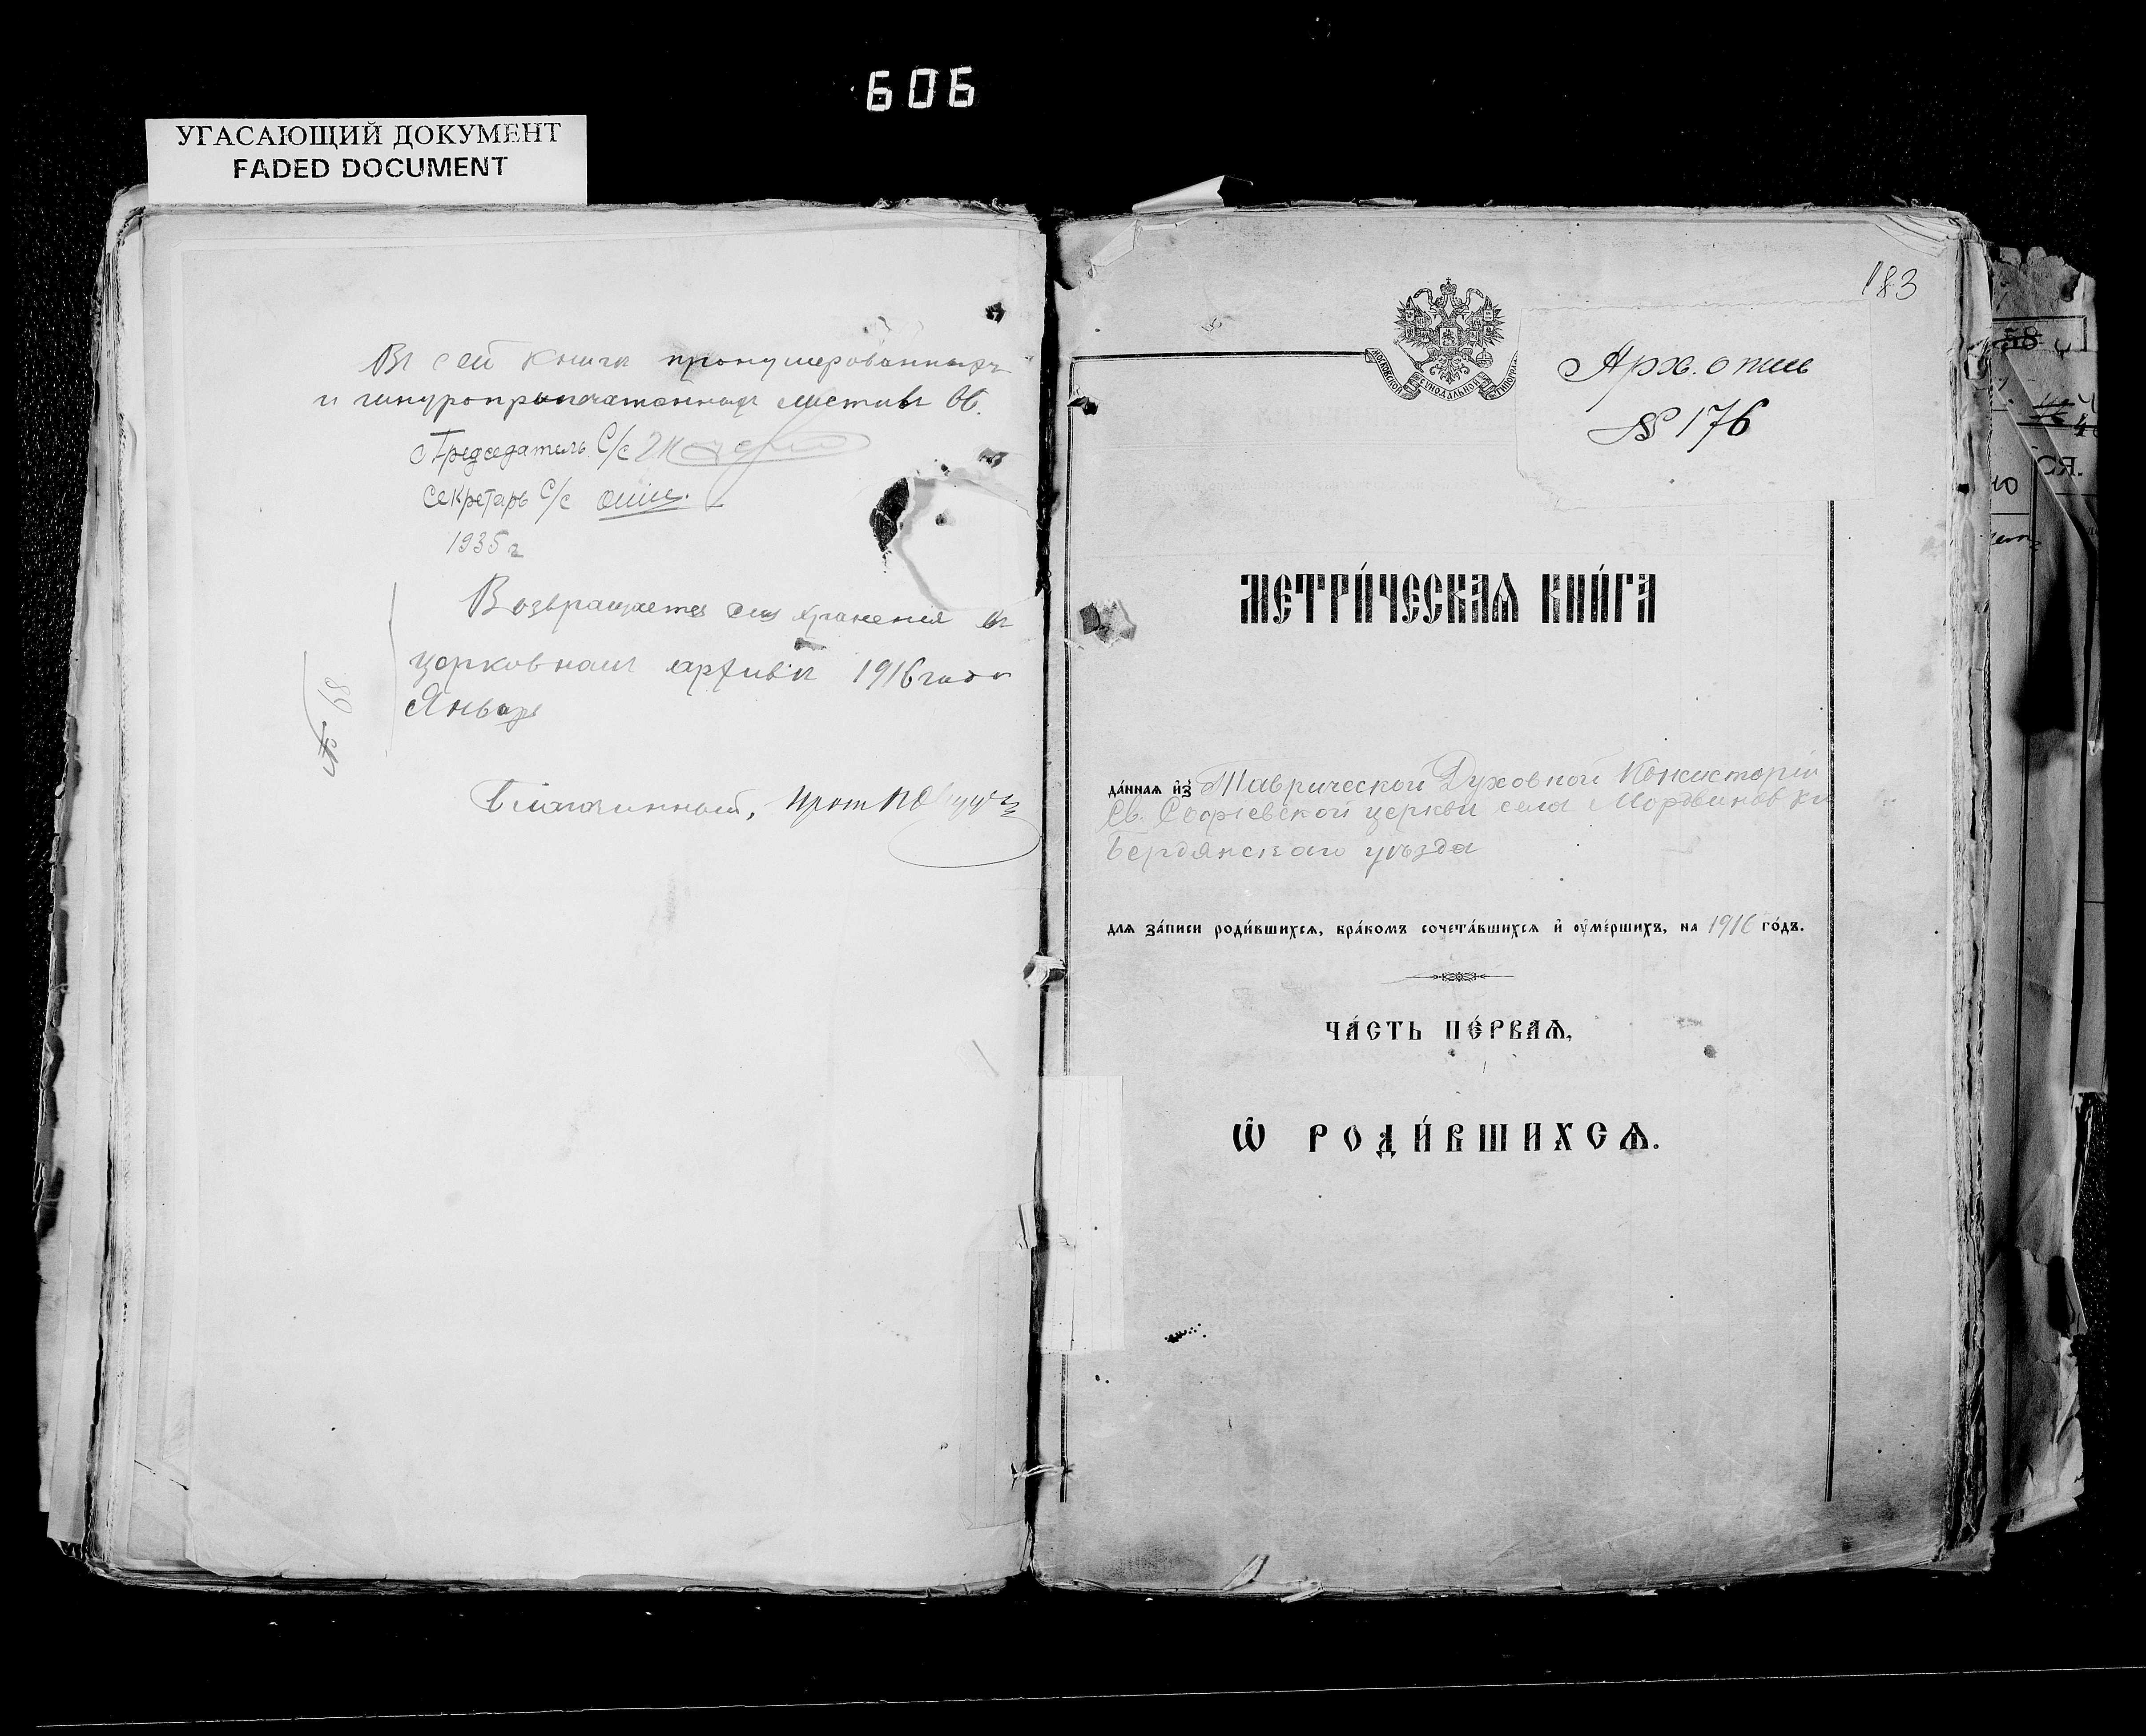 606
УГАСАЮЩИЙ ДОКУМЕНТ
FADED DOCUMENT
В сей книги пронумерованных
и шнуропропечатанных листов 66.
Председатель С/с
Секретарь С/с
1935 г
Возвращается для хранения въ
церковномъ архивѣ 1916 года
Январь
№ 18
Благочинный, Прот.
183
МОСКОВСКОЙ СѴНОДАЛЬНОЙ ТИПОГРАФ
Арх. опись
№ 176
МЕТРИ́ЧЕСКАѦ КНИ́ГА
да́нная и҆з̾ Таврической Духовной Консисторіи
Св. Софіевской церкви села Мордвиновки
Бердянскаго уѣзда
для за́писи роди́вшихсѧ, бра́комъ сочета́вшихсѧ и҆ ѹ҆ме́ршихъ, на 1916 го́дъ.
ЧА́СТЬ ПЕ́РВАѦ,
Ѽ РОДИ́ВШИХСѦ.